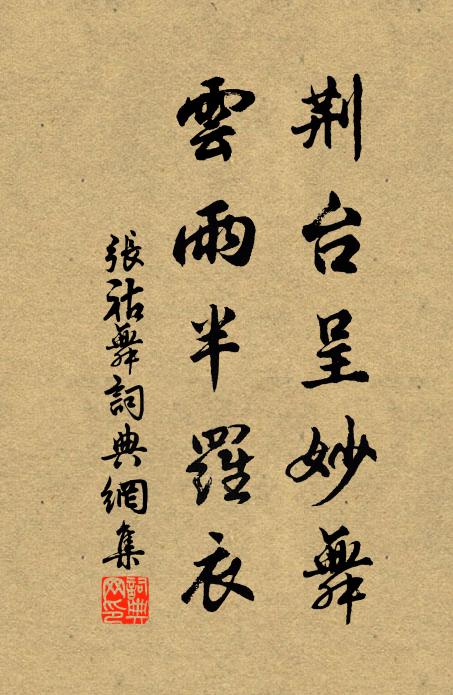 荆台呈妙舞
雲雨半羅衣
張祜舞詞典網集
詞典网印